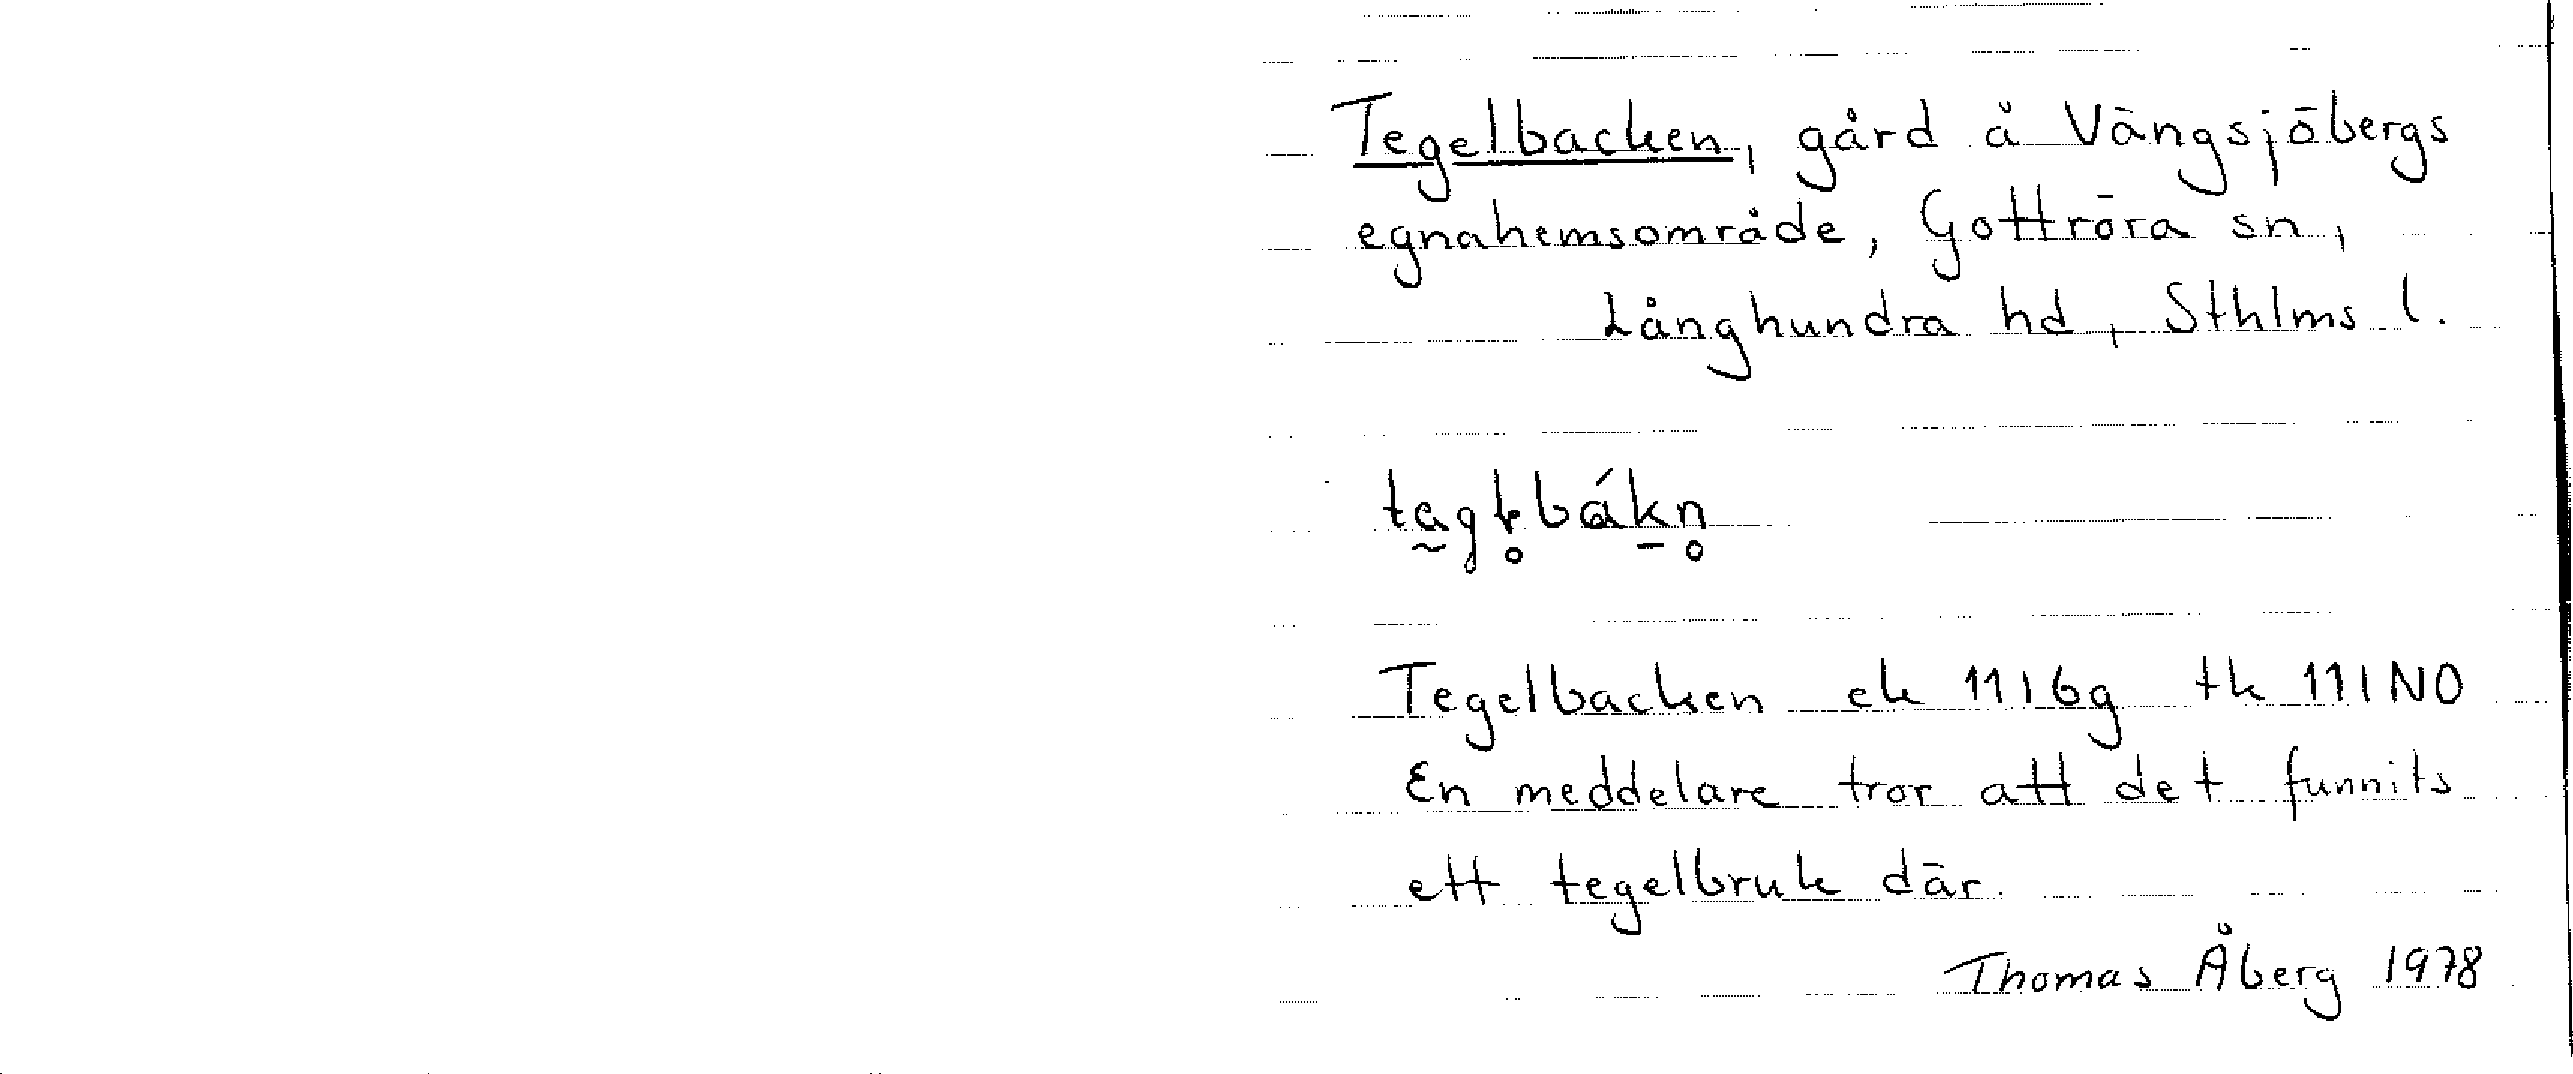 Tegelbacken, gård å Vängsjöbergs
egnahemsområde, Gottröra sn,
Långhundra hd, Sthlms l.
Tegelbacken ek 11I6g tk 11INO
En meddelare tror att det funnits
ett tegelbruk där.
Thomas Åberg 1978